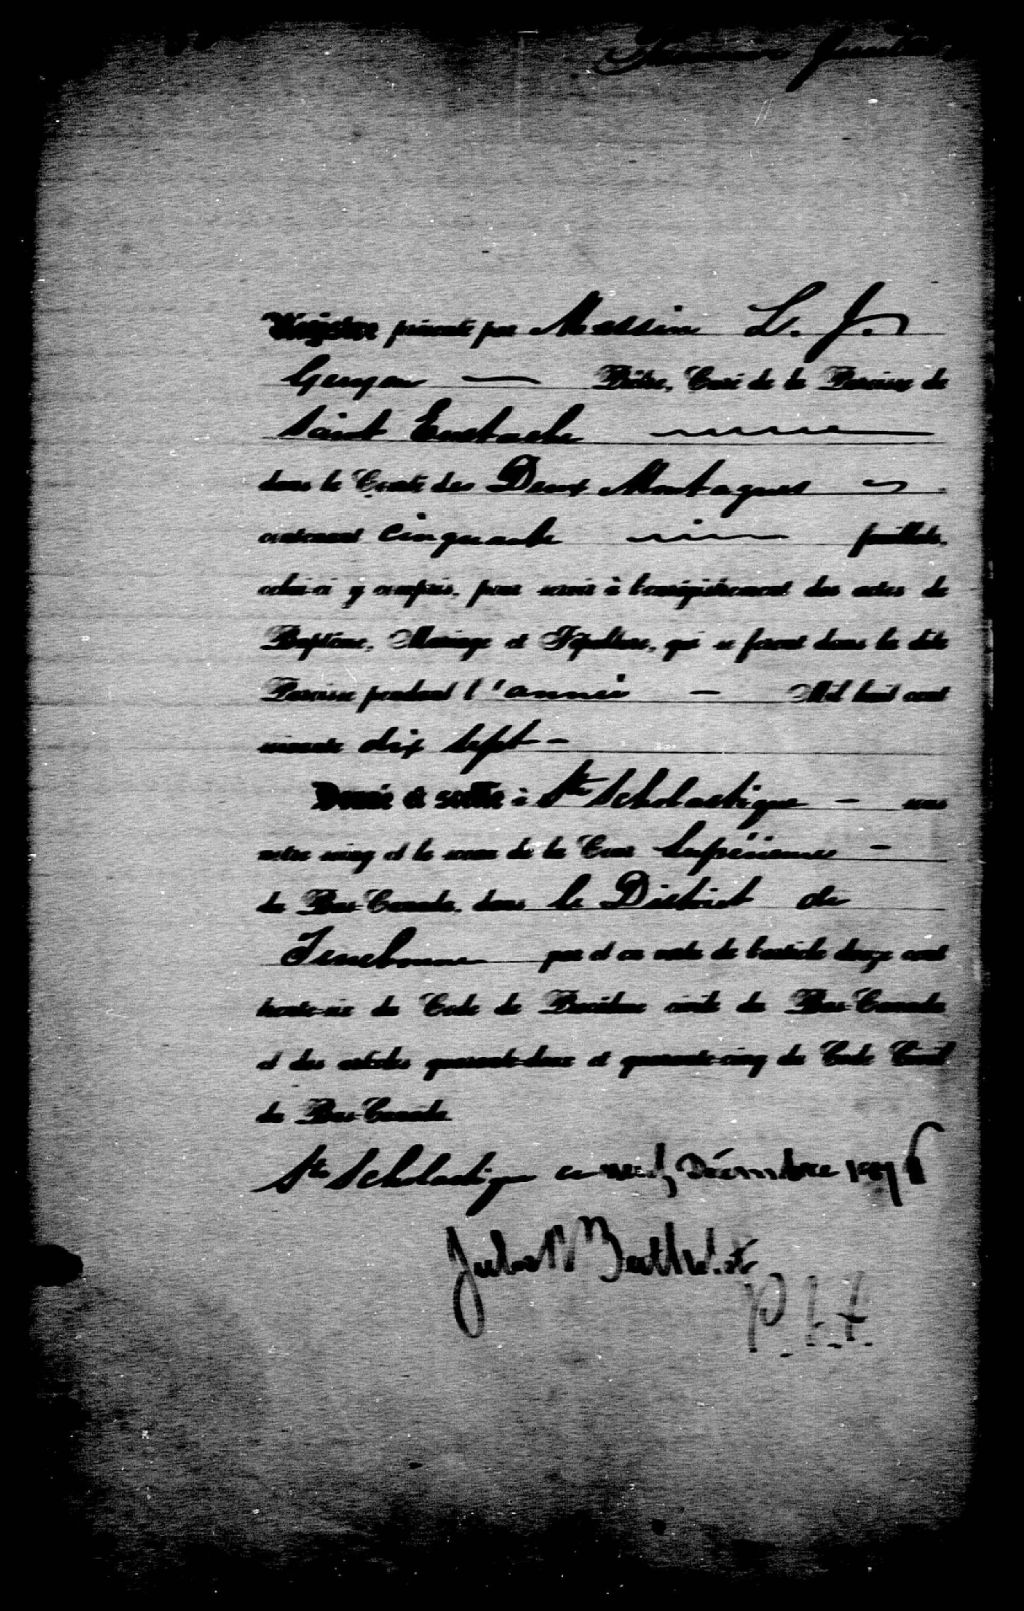 Premier feuillet
Registre présenté par Messire L. J.
Guyon — Prêtre, Curé de la Paroisse de
Saint Eustache
dans le Comté des Deux Montagnes
contenant cinquante feuillets,
celui-ci y compris, pour servir à l'enrégistrement des actes de
Baptême, Mariage et Sépulture, qui se feront dans la dite
Paroisse pendant l'année — Mil huit cent
soixante dix sept —
Donné et scellé à Ste Scholastique — sous
notre seing et le sceau de la Cour Supérieure —
du Bas-Canada, dans le District de
Terrebonne par et en vertu de l'article douze cent
trente-six du Code de Procédure civile du Bas-Canada
et des articles quarante-deux et quarante-cinq du Code Civil
du Bas-Canada.
Ste Scholastique ce Décembre 1876
Berthelot